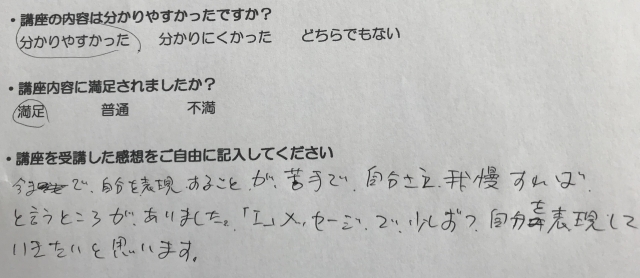 ・講座の内容は分かりやすかったですか？
分かりやすかった 分かりにくかった どちらでもない
・講座内容に満足されましたか？
満足 普通 不満
・講座を受講した感想をご自由に記入してください
今まで、自分を表現することが、苦手で、自分さえ我慢すれば
と言うところが、ありました。「I」メッセージで、少しずつ、自分を表現して
いきたいと思います。